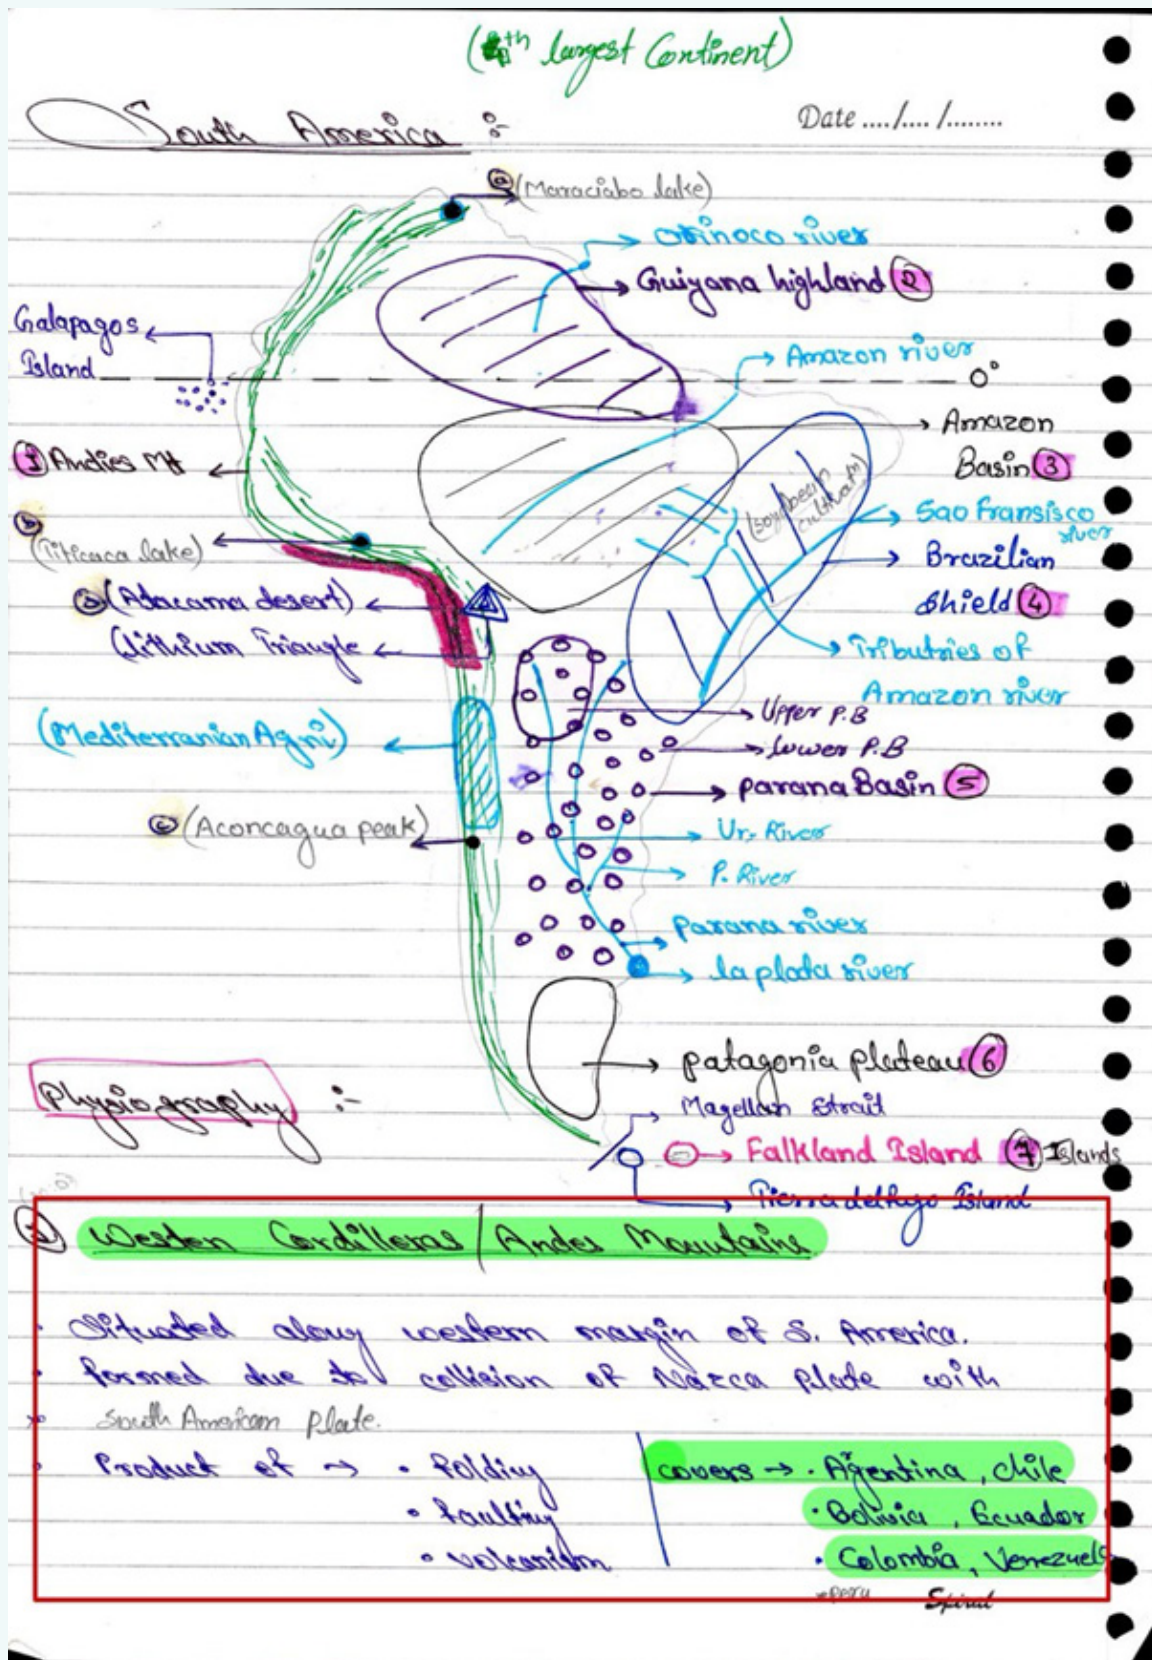 (4th largest Continent)
South America :-
Date ..../..../........
(a) (Maraciabo lake)
Orinoco river
Guiyana highland (2)
Galapagos
Island
Amazon river
0°
Amazon
Basin (3)
(1) Andies Mt
(soyabeen
cultivatn)
Sao Fransisco
river
(b)
(Titicaca lake)
Brazilian
Shield (4)
(a) (Atacama desert)
Lithium Triangle
Tributries of
Amazon river
Upper P.B
(Mediterranian Agri)
lower P.B
parana Basin (5)
(c) (Aconcagua peak)
Ur. River
P. River
parana river
la plata river
patagonia plateau (6)
Physiography :-
Magellan Strait
Falkland Island (7) Islands
Tierra delfugo Island
Western Cordilleras / Andes Mountains
Situated along western margin of S. America.
formed due to collision of Nazca Plate with
South American Plate.
Product of → • folding
• faulting
• volcanism
covers → • Argentina, Chile
• Bolivia, Ecuador
• Colombia, Venezuela
• peru
Spiral